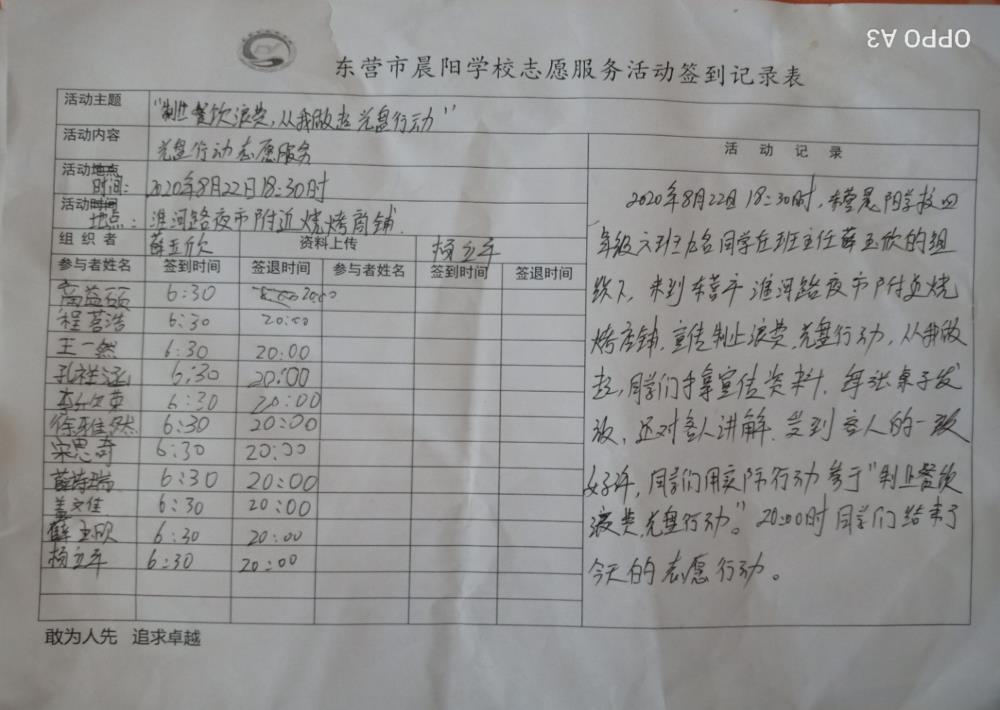 OPPO A3
东营市晨阳学校志愿服务活动签到记录表
活动主题 "制止餐饮浪费,从我做起 光盘行动"
活动内容 光盘行动志愿服务
活动地点 时间: 2020年8月22日18:30时
活动时间 地点: 淮河路夜市附近烧烤商铺.
组织者 薛玉欣 资料上传 杨立平
参与者姓名 签到时间 签退时间 参与者姓名 签到时间 签退时间
6:30 20:00
程茗浩 6:30 20:00
王一然 6:30 20:00
孔祥涵 6:30 20:00
6:30 20:00
徐雅然 6:30 20:00
宋思奇 6:30 20:00
薛诗瑞 6:30 20:00
盖文佳 6:30 20:00
薛玉欣 6:30 20:00
杨立平 6:30 20:00
敢为人先 追求卓越
活动记录
2020年8月22日18:30时,东营晨阳学校四
年级六班 名同学在班主任薛玉欣的组
织下,来到东营市淮河路夜市附近烧
烤店铺,宣传制止浪费,光盘行动,从我做
起,同学们手拿宣传资料,每张桌子发
放,还对客人讲解,受到客人的一致
好评,同学们用实际行动参于"制止餐饮
浪费,光盘行动"。20:00时同学们结束了
今天的志愿行动。